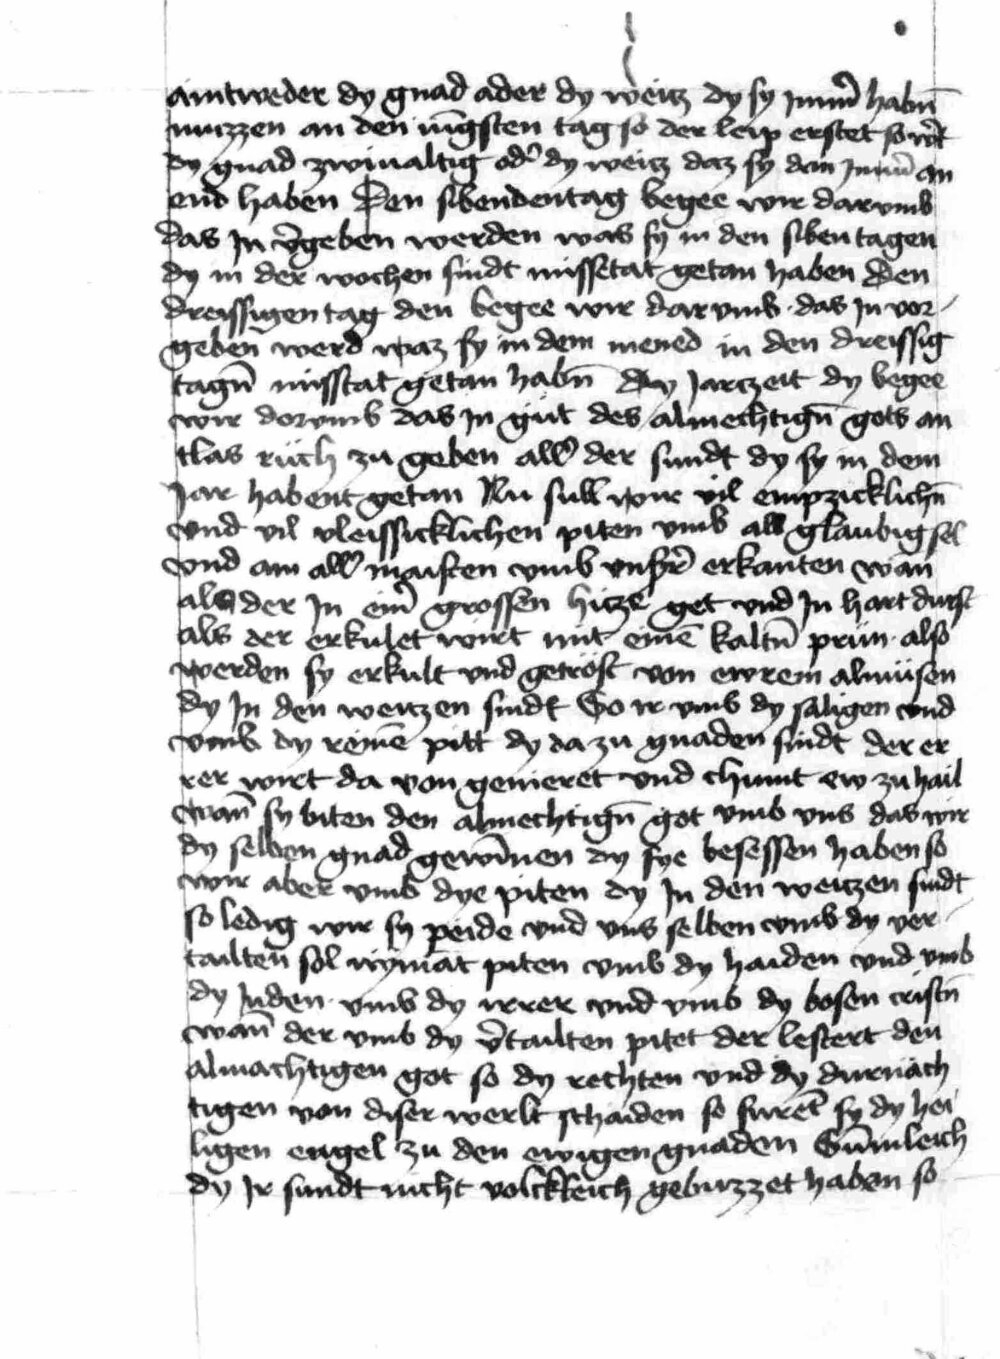 aintweder dy gnad ader dy weitz dy sy ym̄ habn̄
muzzen an den iūgsten tag so der leip erstet so wirt
dy gnad zwiualtig od̓ dy weitz daz sy dan ym̄ an
end haben Den sibenden tag begee wir darvmb
das In v̓geben werden was sy in den siben tagen
dy in der wochen sindt missetat getan haben Den
dreissigen tag den begee wir darvmb das In vor-
geben werd waz sy in dem moned in den dreissig
tagn̄ misstat getan habn̄ Dy Jarczeit dy begee
wir dorvmb das In gút des almechtign̄ gots an
tlas rüch zu geben all̓ der sundt dy sy in dem
Jar habent getan Nu sull wir vil empzicklichn̄
vnd vil vleissicklichen piten vmb all glaubig sel
vnd am all̓ maisten vmb vnsr̓ erkanten wan
als der In ein̓ grossen hicze get vnd In hart durst
als der erkulet wirt mit einē kaltn̄ prün also
werden sy erkult vnd getröst von ewrem almüsen
dy In den weitzen sindt So ir vmb dy säligen vnd
vmb dy reinē pitt dy da zu gnaden sindt der er
rer wirt da von gemeret vnd chumt ew zu hail
wan̄ sy biten den almechtign̄ got vmb vns das wir
dy selben gnad gewīnen dy sye besessen haben so
wir aber vmb dye piten dy In den weitzen sindt
so ledig wir sy peide vnd vns selben vmb dy ver-
tailten sol nymāt piten vmb dy haiden vnd vmb
dy Juden vmb dy irrer vnd vmb dy bosen cristn̄
wan̄ der vmb dy v̓tailten pitet der lestert den
almachtigen got so dy rechten vnd dy durnäch
tigen von diser werlt schaiden so furēt sy dy hei
ligen engel zu den ewigen gnaden Sūmleich
dy Ir sundt nicht volckleich gebuzzet haben so